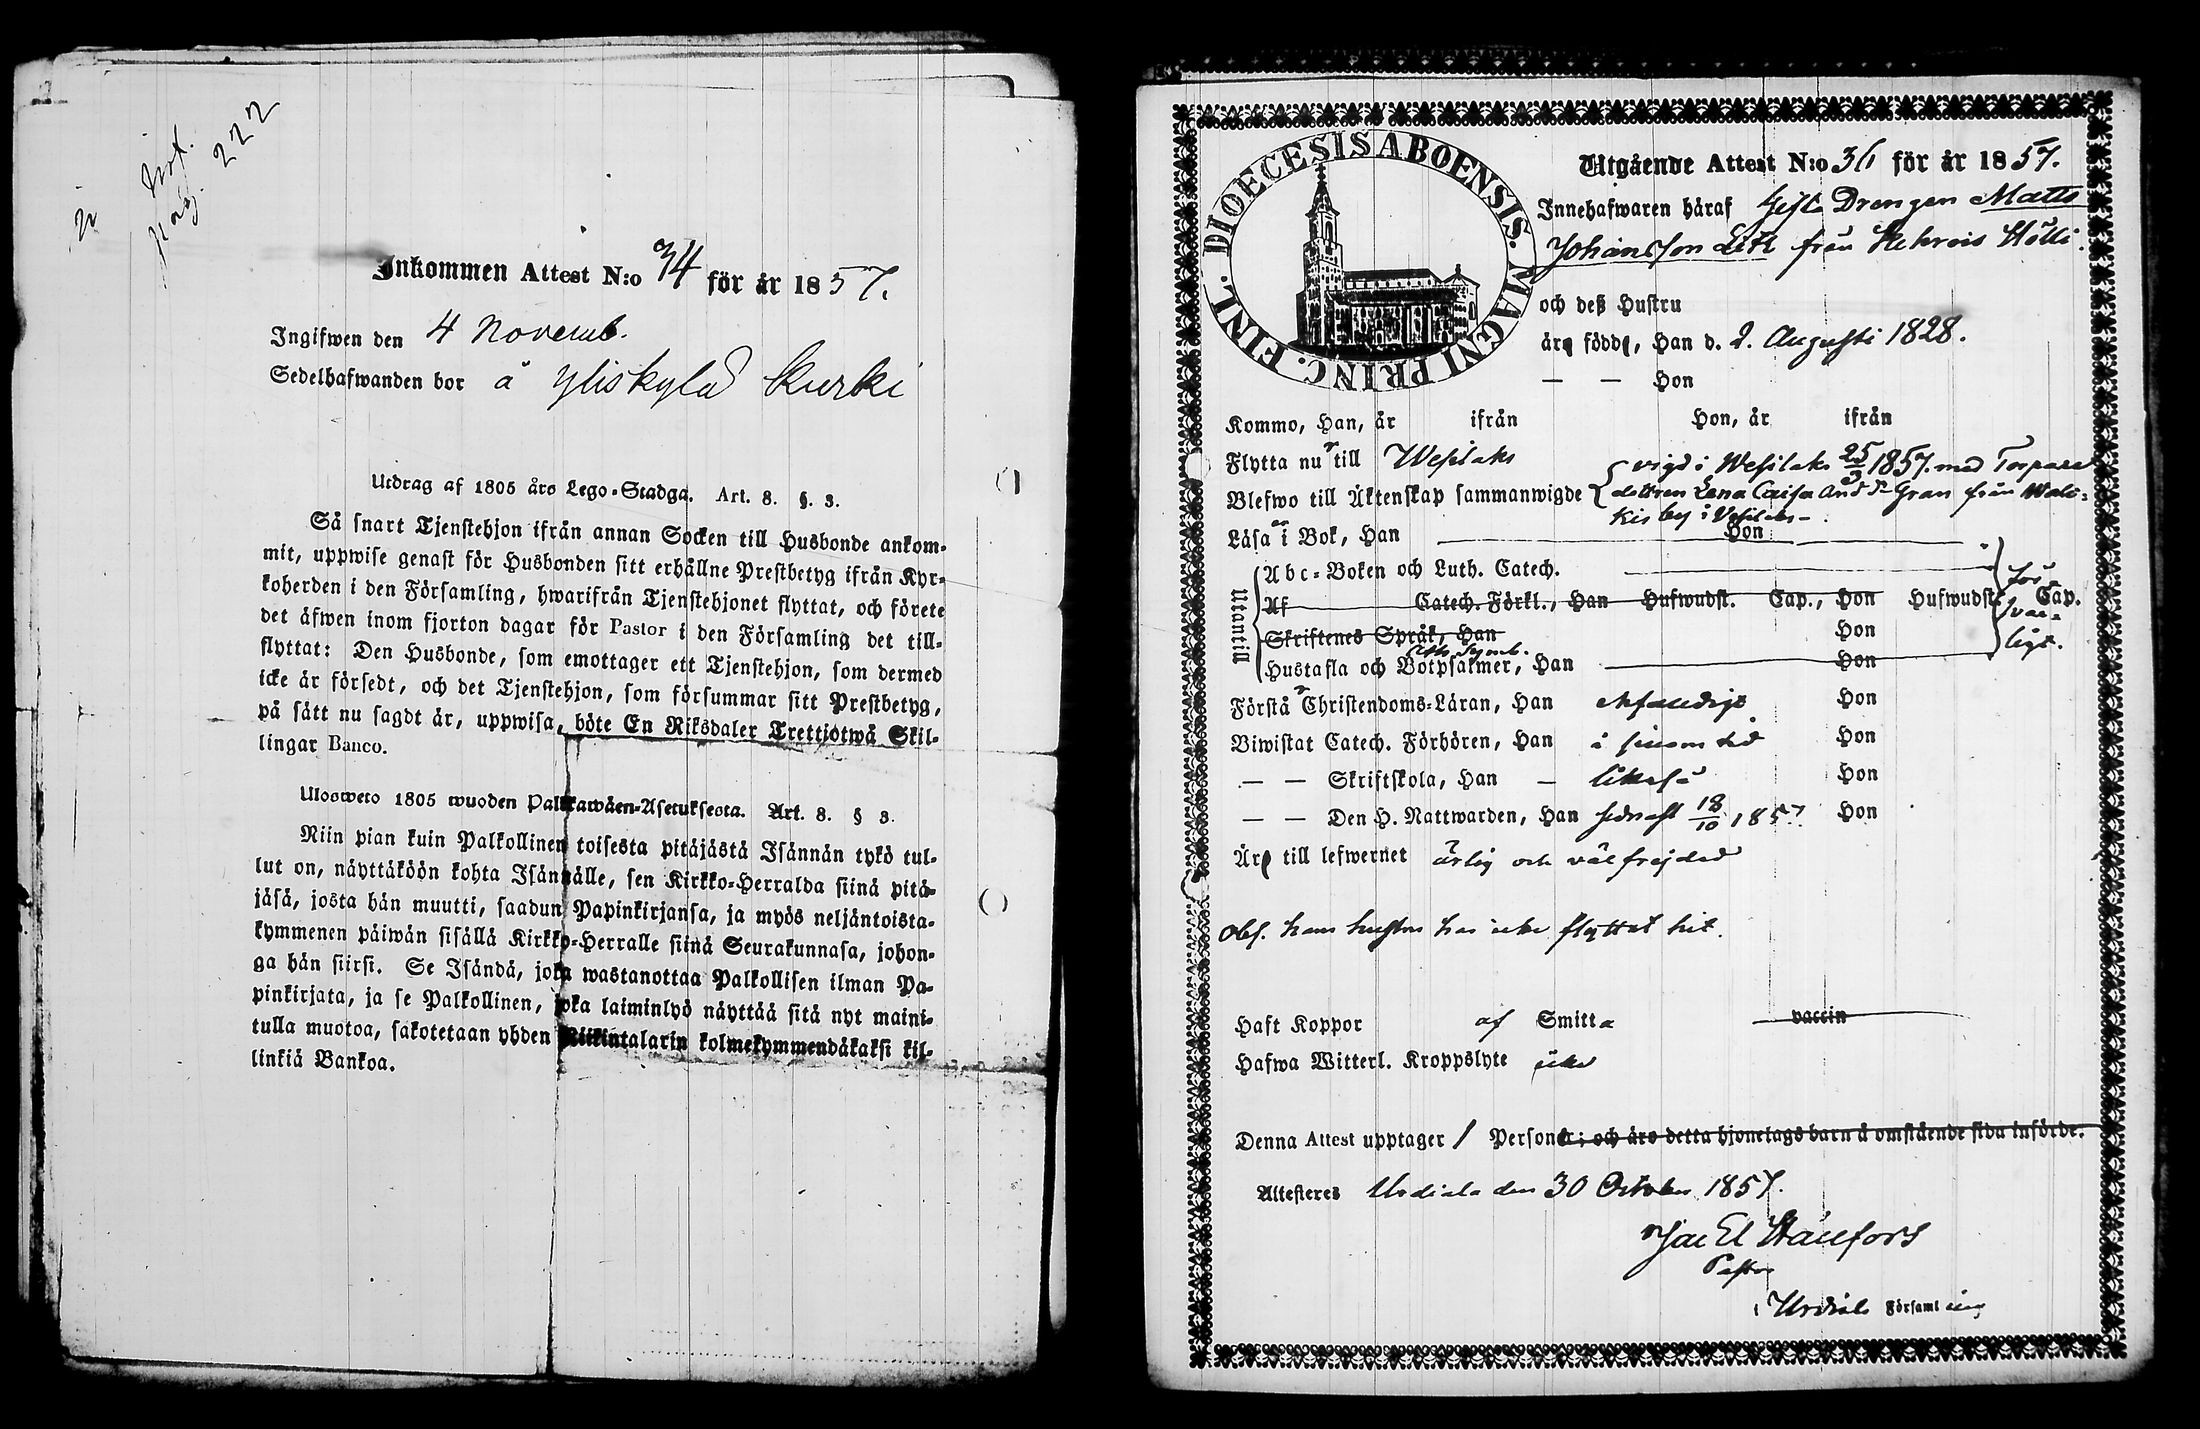 Not.
pag. 222
Inkommen Attest N:o 34 för år 1857.
Ingifwen den 4 Novemb.
Sedelhafwanden bor å Yliskylä Kurki
Utdrag af 1805 års Lego-Stadga. Art. 8. §. 3.
Så snart Tjenstehjon ifrån annan Socken till Husbonde ankom-
mit, uppwise genast för Husbonden sitt erhållne Prestbetyg ifrån Kyr-
koherden i den Församling, hwarifrån Tjenstehjonet flyttat, och förete
det äfwen inom fjorton dagar för Pastor i den Församling det till-
flyttat: Den Husbonde, som emottager ett Tjenstehjon, som dermed
icke är försedt, och det Tjenstehjon, som försummar sitt Prestbetyg,
på sätt nu sagdt är, uppwisa, böte En Riksdaler Trettiotwå Skil-
lingar Banco.
Ulosweto 1805 wuoden Palkkawäen-Asetuksesta. Art. 8. § 3.
Niin pian kuin Palkollinen toisesta pitäjästä Isännän tykö tul-
lut on, näyttäköön kohta Isännälle, sen Kirkko-Herralda siinä pitä-
jäsä, josta hän muutti, saadun Papinkirjansa, ja myös neljäntoista-
kymmenen päiwän sisällä Kirkko-Herralle siinä Seurakunnasa, johon-
ga hän siirsi. Se Isändä, joka wastanottaa Palkollisen ilman Pa-
pinkirjata, ja se Palkollinen, joka laiminlyö näyttää sitä nyt maini-
tulla muotoa, sakotetaan yhden Riikintalarin kolmekymmendäkaksi kil-
linkiä Bankoa.
DIOECESIS ABOENSIS. MAGNI PRINC. FINL.
Utgående Attest N:o 36 för år 1857.
Innehafwaren häraf Gifte Drengen Matts
Johansson Lith från Kehrois Hölli.
och deß Hustru
äro födde, Han d. 2. Augusti 1828.
— — Hon
Kommo, Han, år ifrån Hon, år ifrån
Flytta nu till Wesilaks
vigd i Wesilaks 25/3 1857. med Torpare
Blefwo till Äktenskap sammanwigde dottren Lena Caisa And.dr Gran från Wala-
kis by i Vesilaks.
Läsa i Bok, Han Hon
Utantill
Abc-Boken och Luth. Catech.
Af Catech. Förkl., Han Hufwudst. Cap., Hon Hufwudst. Cap.
Skriftenes Språk, Han Hon
Ath. Symb.
Hustafla och Botpsalmer, Han Hon
för-
svar-
ligt.
Förstå Christendoms-Läran, Han enfaldigt Hon
Biwistat Catech. Förhören, Han i sinom tid Hon
— — Skriftskola, Han — likaså Hon
— — Den H. Nattwarden, Han sednast 18/10 1857. Hon
Äro till lefwernet ärlig och välfrejdad
Obs. hans hustru har icke flyttat hit.
Haft Koppor af Smitta vaccin
Hafwa Witterl. Kroppslyte icke
Denna Attest upptager 1 Personer; och äro detta hjonelags barn å omstående sida införde.
Attesteres Urdiala den 30 October 1857.
Pastor
i Urdiala Församling